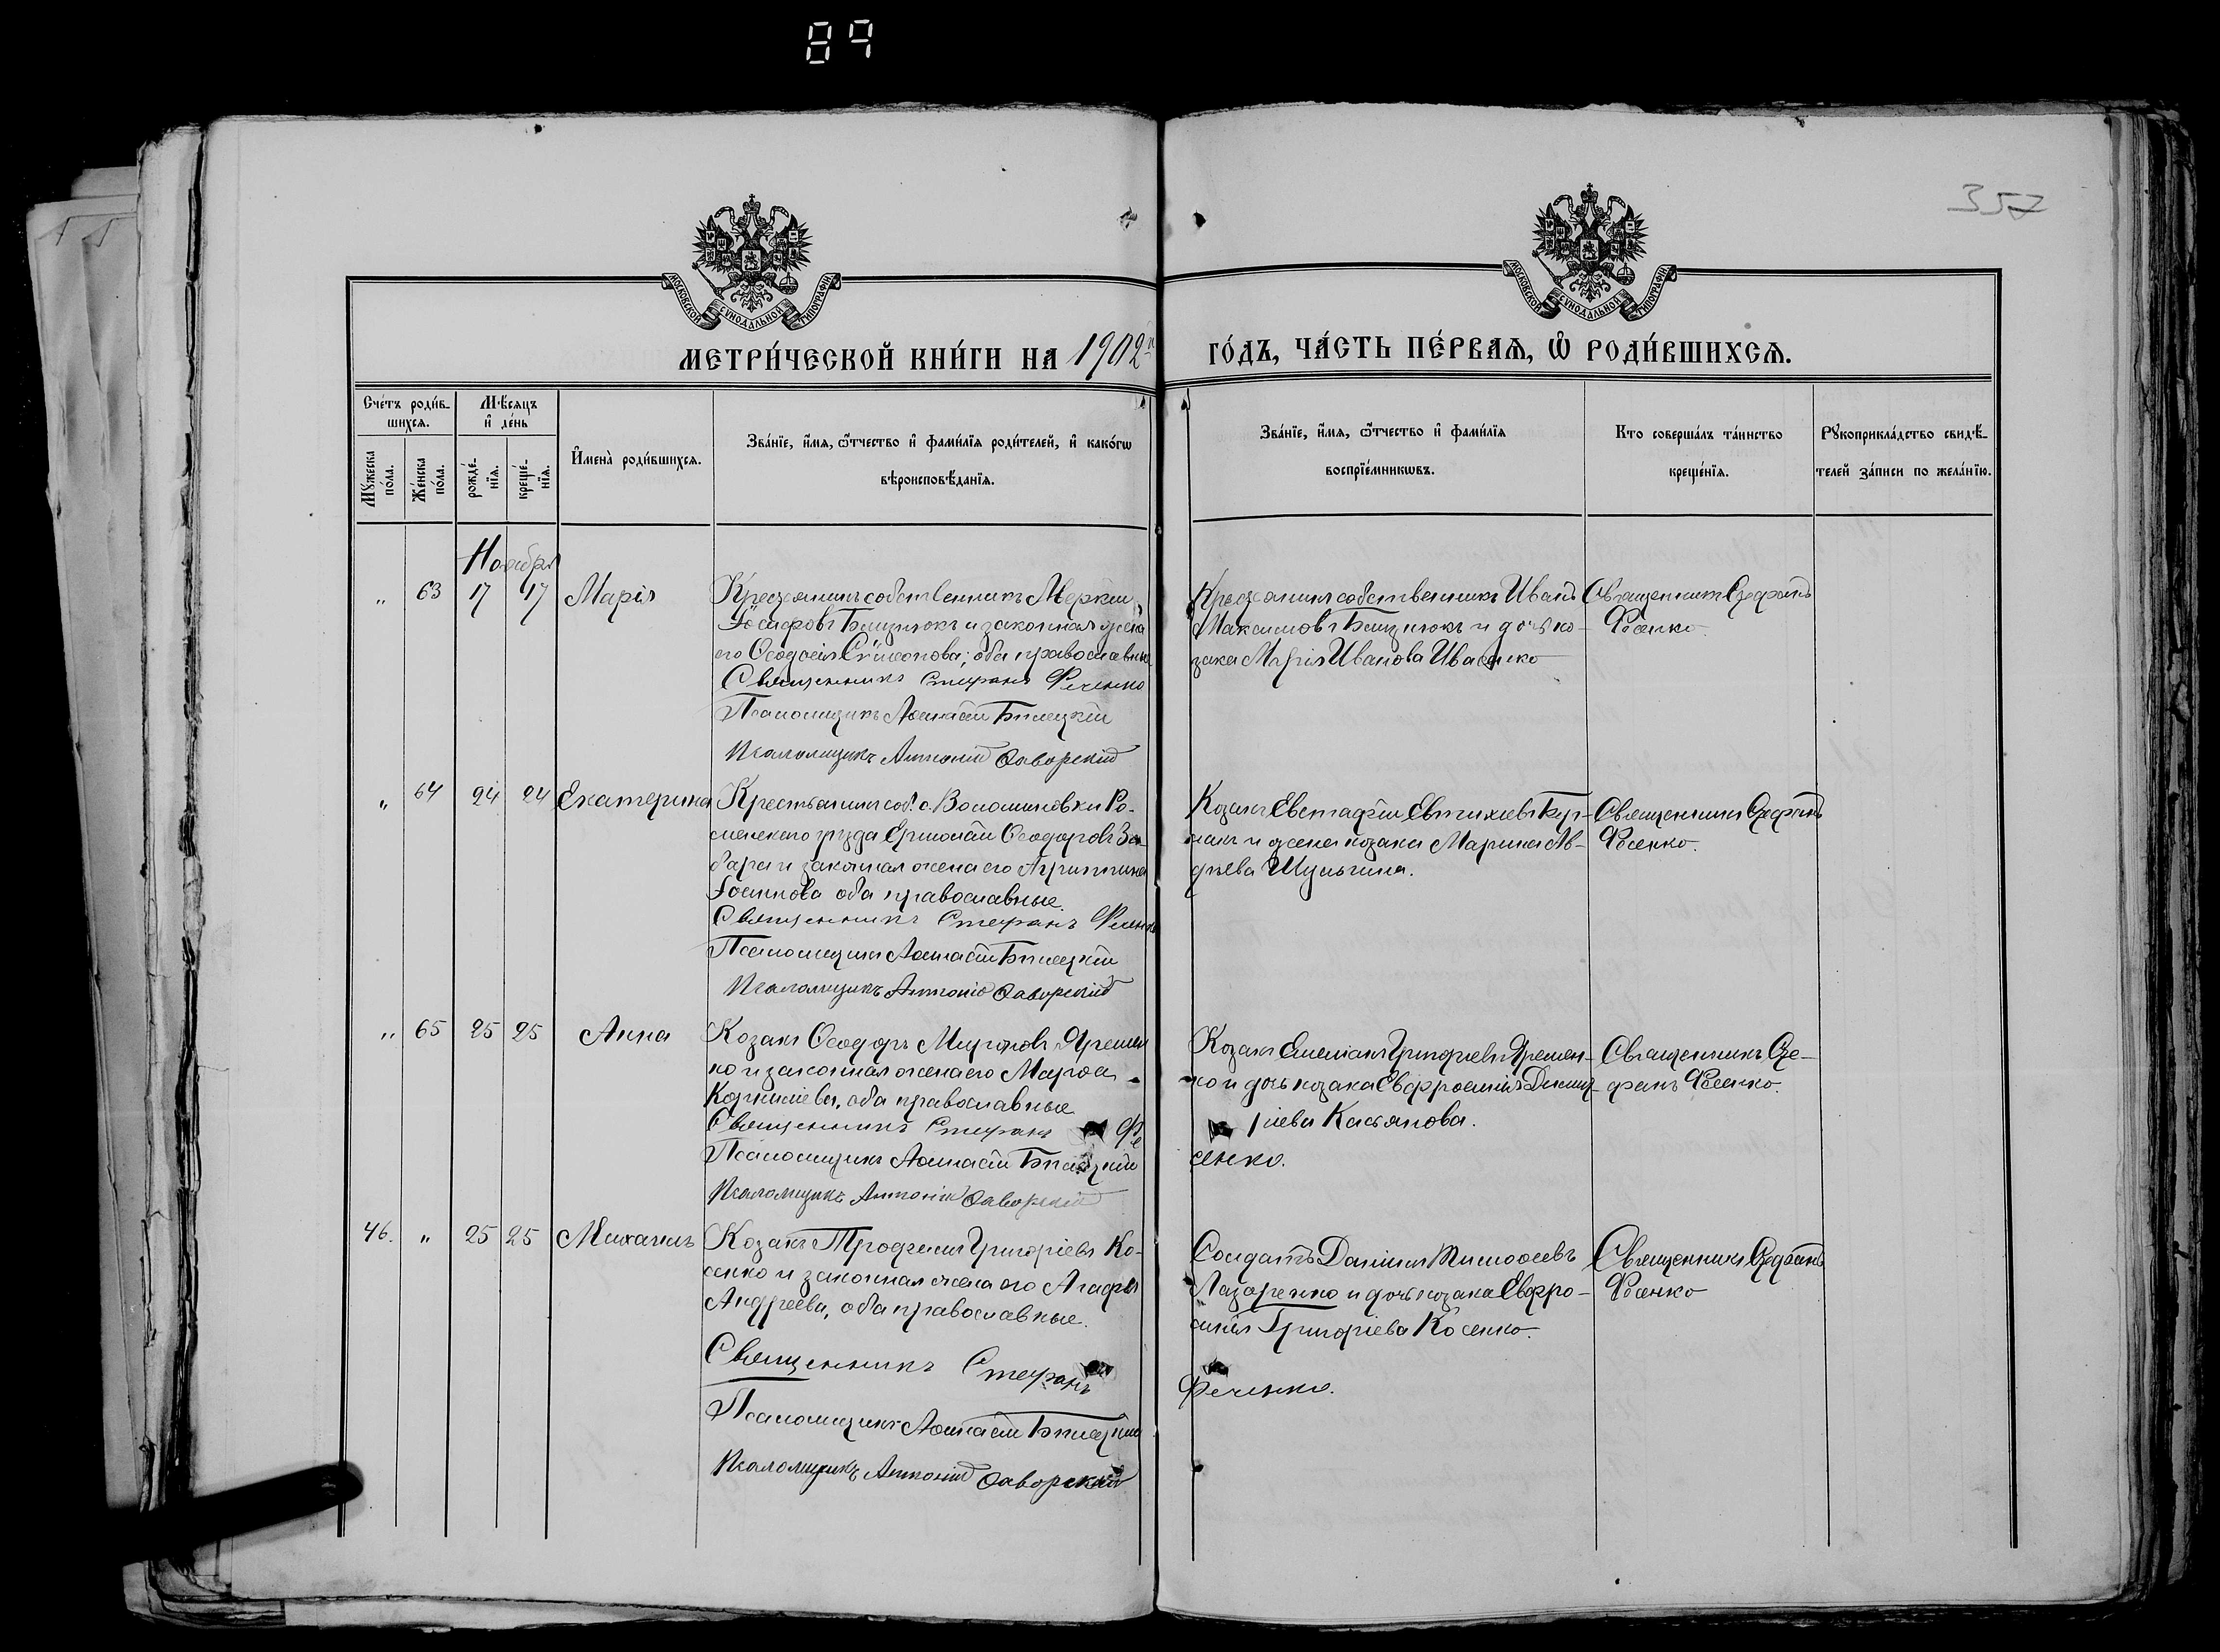 89
357
МОСКОВСКОЙ СУНОДАЛЬНОЙ ТИПОГРАФІИ
МОСКОВСКОЙ СУНОДАЛЬНОЙ ТИПОГРАФІИ
МЕТРИ́ЧЕСКОЙ КНИ́ГИ НА 1902 й ГО́ДЪ, ЧА́СТЬ ПЕ́РВАЯ, Ѡ РОДИ́ВШИХСЯ.
Сче́тъ роди́в-
шихся.
Мꙋ́жеска по́ла.
Же́нска по́ла.
Мѣ́сяцъ и де́нь
рожде́-
нїя.
креще́-
нїя.
Имена̀ роди́вшихся.
Зва́нїе, и́мя, ѻ҆́тчество и фами́лїя роди́телей, и како́гѡ
вѣроисповѣ́данїя.
Зва́нїе, и́мя, ѻ҆́тчество и фами́лїя
воспрїе́мникѡвъ.
Кто соверша́лъ та́инство
креще́нїя.
Рꙋкоприкла́дство свидѣ́-
телей за́писи по жела́нїю.
Ноября
„ 63 17 17 Марія
Крестьянинъ собственникъ Меркій
Іосифовъ Бащнюкъ и законная жена
его Ѳеодосія Сѵмеонова; оба православные
Священникъ Стефанъ Фесенко
Псаломщикъ Аѳанасій Билецкій
Псаломщикъ Антоній Яворскій
Крестьянинъ собственникъ Иванъ
Максимовъ Бащнюкъ и дочь ко-
зака Марія Иванова Иваненко
Священникъ Стефанъ
Фесенко
„ 64 24 24 Екатерина
Крестьянинъ соб. с. Воломиновки Ро-
менскаго уѣзда Ермолай Ѳеодоровъ За-
бара и законная жена его Агриппина
Іоаннова оба православные.
Священникъ Стефанъ Фесенко
Псаломщикъ Аѳанасій Билецкій
Псаломщикъ Антоній Яворскій
Козакъ Евстафій Евтихіевъ Бур-
лакъ и жена козака Марина Ав-
дѣева Шульгина.
Священникъ Стефанъ
Фесенко.
„ 65 25 25 Анна
Козакъ Ѳеодоръ Мироновъ Яремен
ко и законная жена его Марѳа
Корниліева, оба православные
Священникъ Стефанъ Фе
Псаломщикъ Аѳанасій Билецкій
Псаломщикъ Антоній Яворскій
Козакъ Емеліанъ Григоріевъ Яремен-
ко и дочь козака Евфросинія Димит-
ріева Касьянова.
сенко.
Священникъ Сте-
фанъ Фесенко.
46. „ 25 25 Михаилъ
Козакъ Трофимъ Григоріевъ Ко-
сенко и законная жена его Агафія
Андреева, оба православные.
Священникъ Стефанъ
Псаломщикъ Аѳанасій Билецкій
Псаломщикъ Антоній Яворскій
Солдатъ Даніилъ Тимоѳеевъ
Лазоренко и дочь козака Евфро-
синія Григоріева Косенко.
Фесенко.
Священникъ Стефанъ
Фесенко